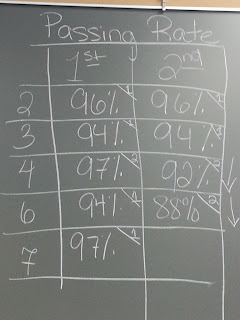 Passing Rate
1st 2nd
2 96% 1 96% 1
3 94% 94%
4 97% 2 92%
6 94% 88% 2
7 97% 1